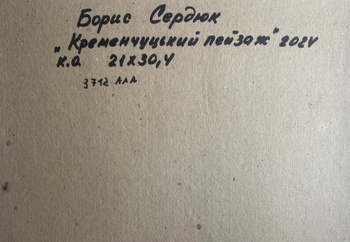 Борис Сердюк
„Кременчуцький пейзаж" 2024
к.а 21х30,4
3712 ААА